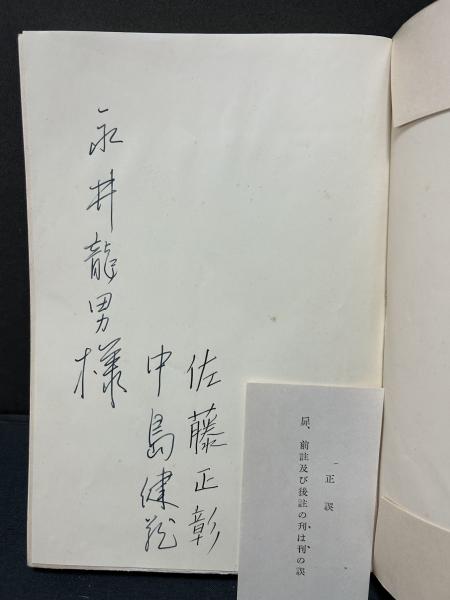 佐藤正彰
中島健蔵
永井龍男様
正誤
扉、前註及び後註の刋は刊の誤